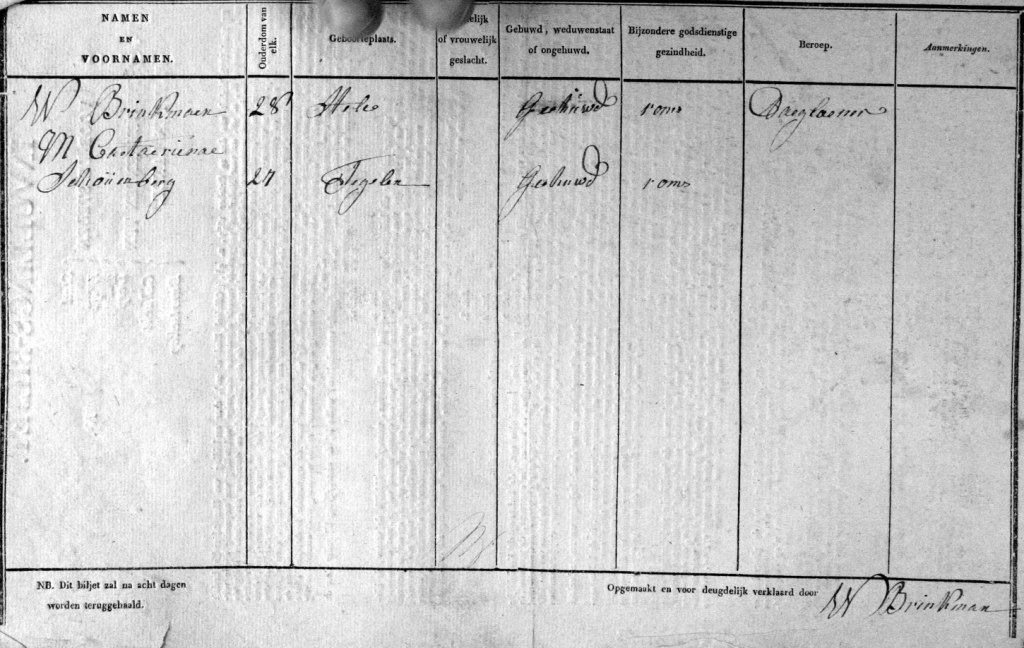 NAMEN EN VOORNAMEN. Ouderdom van elk. Geboorteplaats. of vrouwelijk geslacht. Gehuwd, weduwenstaat of ongehuwd. Bijzondere godsdienstige gezindheid. Beroep. Aanmerkingen.
W Brinkmaen 28 Gehuwd roms
M
Schouenberg 27 Tegelen Gehuwd roms
NB. Dit biljet zal na acht dagen worden teruggehaald.
Opgemaakt en voor deugdelijk verklaard door W Brinkman